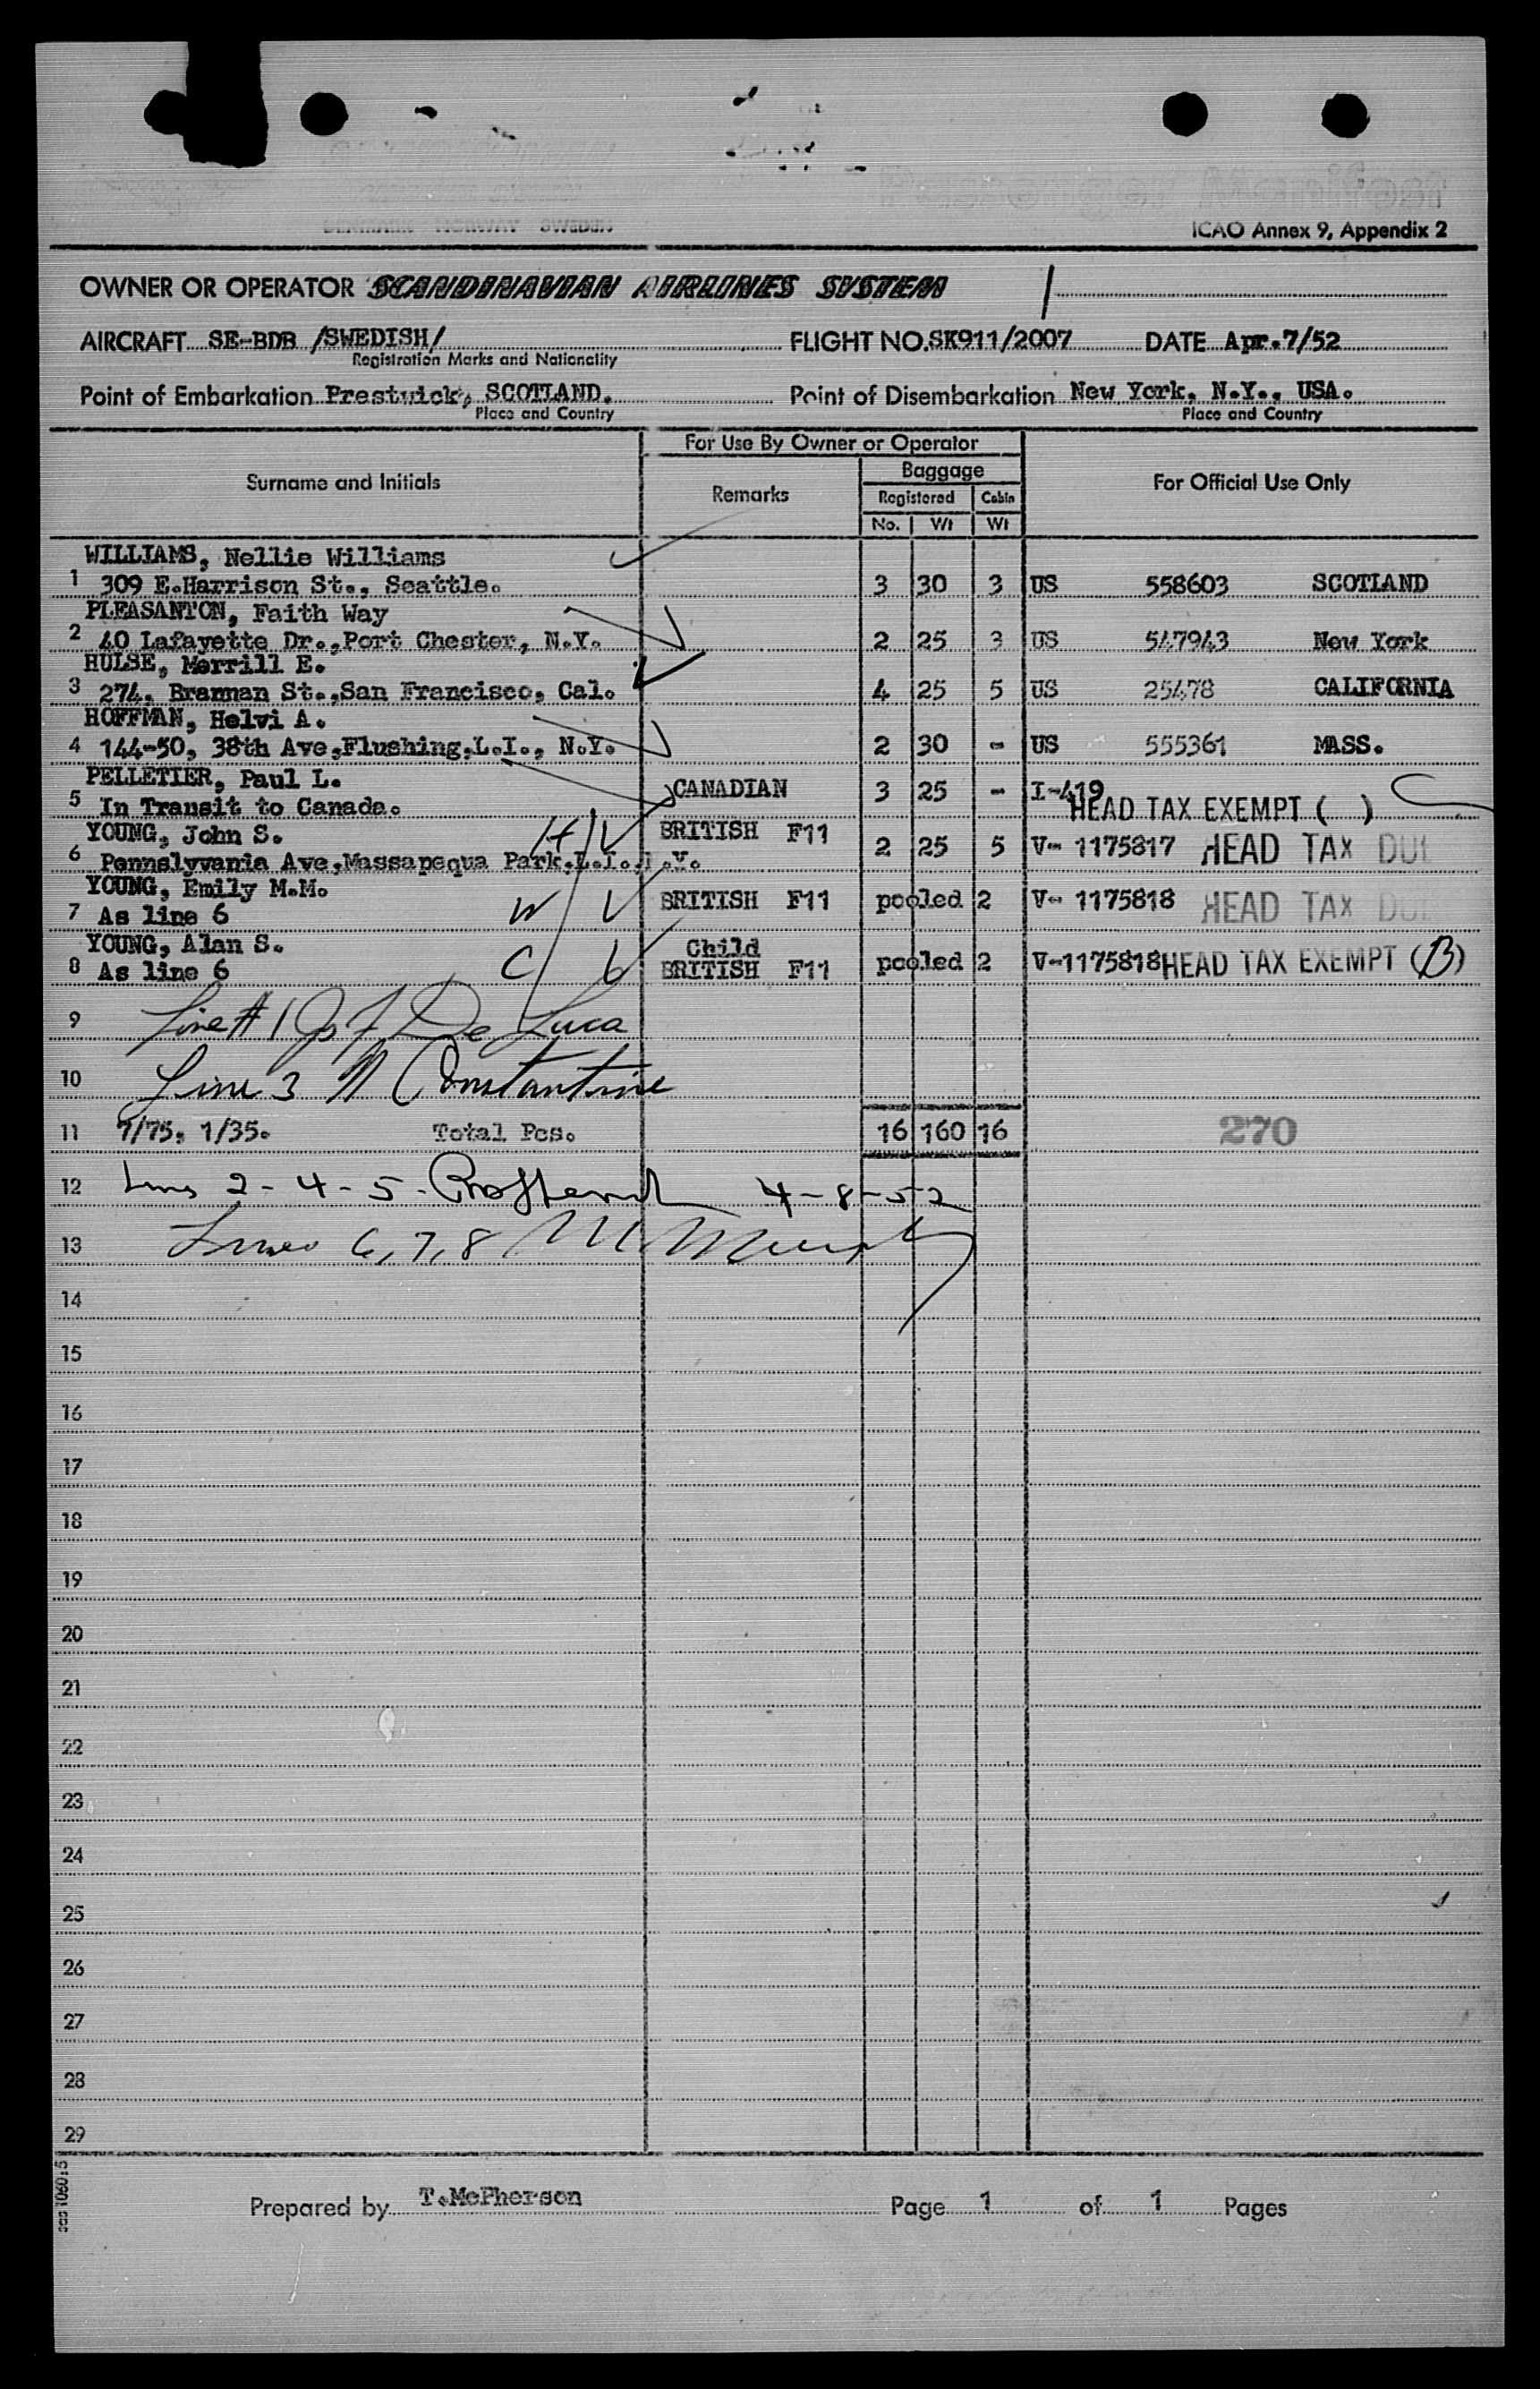 DENMARK NORWAY SWEDEN
Passenger Manifest
ICAO Annex 9, Appendix 2
OWNER OR OPERATOR SCANDINAVIAN AIRLINES SYSTEM
AIRCRAFT SE-BDB /SWEDISH/ FLIGHT NO. SK911/2007 DATE Apr.7/52
Registration Marks and Nationality
Point of Embarkation Prestwick, SCOTLAND. Point of Disembarkation New York, N.Y., USA.
Place and Country Place and Country
For Use By Owner or Operator
Surname and Initials Remarks Baggage For Official Use Only
Registered Cabin
No. Wt Wt
WILLIAMS, Nellie Williams
1 309 E.Harrison St., Seattle. 3 30 3 US 558603 SCOTLAND
PLEASANTON, Faith Way
2 40 Lafayette Dr.,Port Chester, N.Y. 2 25 3 US 547943 New York
HULSE, Merrill E.
3 274, Brannan St.,San Francisco, Cal. 4 25 5 US 25478 CALIFORNIA
HOFFMAN, Helvi A.
4 144-50, 38th Ave,Flushing,L.I., N.Y. 2 30 - US 555361 MASS.
PELLETIER, Paul L.
5 In Transit to Canada. CANADIAN 3 25 - I-419 HEAD TAX EXEMPT ( )
YOUNG, John S. H BRITISH F11
6 Pennslyvania Ave,Massapequa Park,L.I.,N.Y. 2 25 5 V- 1175817 HEAD TAX DUE
YOUNG, Emily M.M.
7 As line 6 W BRITISH F11 pooled 2 V- 1175818 HEAD TAX DUE
YOUNG, Alan S. Child
8 As line 6 C BRITISH F11 pooled 2 V-1175818 HEAD TAX EXEMPT (B)
9 Line # 1 De Luca
10 Line 3 N Constantine
11 7/75, 1/35. Total Pcs. 16 160 16 270
12 Lines 2-4-5- 4-8-52
13 Lines 6,7,8 M Murphy
14
15
16
17
18
19
20
21
22
23
24
25
26
27
28
29
sas 1060:5
Prepared by T.McPherson Page 1 of 1 Pages